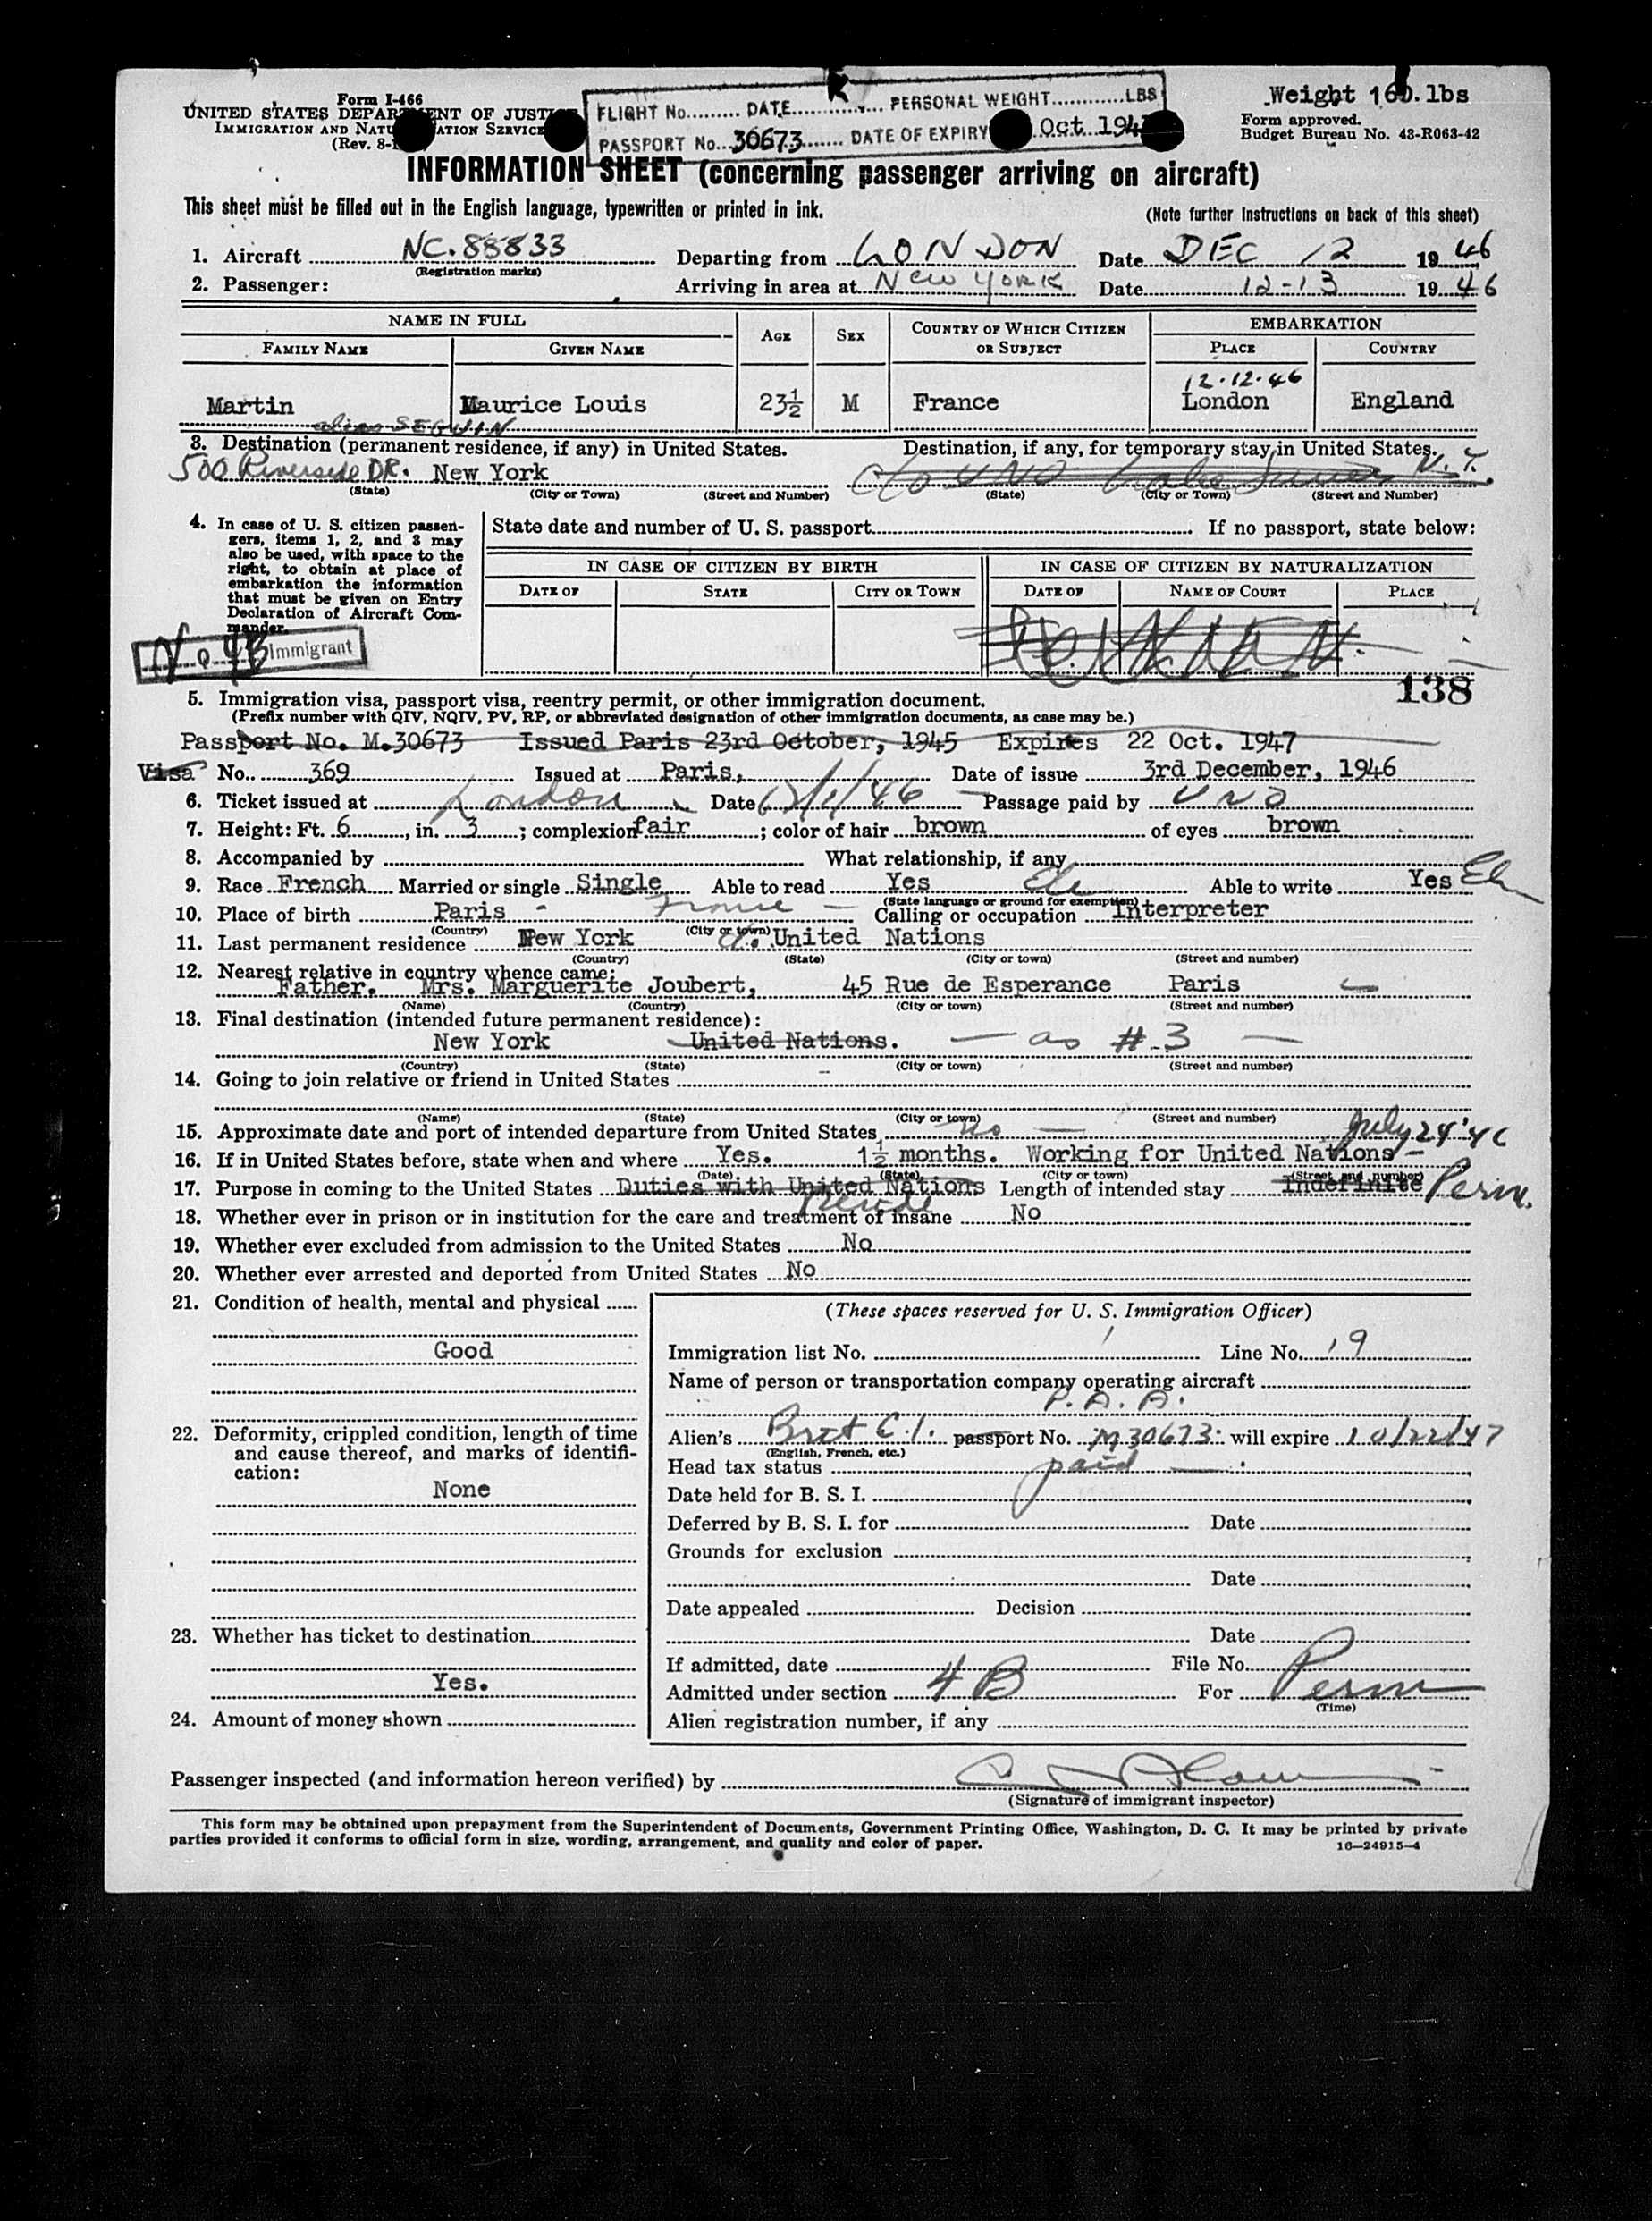 Form I-466
UNITED STATES DEPARTMENT OF JUSTICE
IMMIGRATION AND NATURALIZATION SERVICE
(Rev. 8-
FLIGHT No.......... DATE............... PERSONAL WEIGHT............LBS
PASSPORT No...30673....... DATE OF EXPIRY Oct 194
Weight 160.lbs
Form approved.
Budget Bureau No. 43-R063-42
INFORMATION SHEET (concerning passenger arriving on aircraft)
This sheet must be filled out in the English language, typewritten or printed in ink.
(Note further instructions on back of this sheet)
1. Aircraft NC.88833 Departing from LONDON Date DEC 12 1946
(Registration marks)
2. Passenger: Arriving in area at New York Date 12-13 1946
NAME IN FULL AGE SEX COUNTRY OF WHICH CITIZEN OR SUBJECT EMBARKATION
FAMILY NAME GIVEN NAME PLACE COUNTRY
12.12.46
Martin Maurice Louis 23½ M France London England
alias SEGUIN
3. Destination (permanent residence, if any) in United States. Destination, if any, for temporary stay in United States.
500 Riverside DR. New York c/o UNO Lake N.Y.
(State) (City or Town) (Street and Number) (State) (City or Town) (Street and Number)
4. In case of U. S. citizen passen-
gers, items 1, 2, and 3 may
also be used, with space to the
right, to obtain at place of
embarkation the information
that must be given on Entry
Declaration of Aircraft Com-
mander.
State date and number of U. S. passport If no passport, state below:
IN CASE OF CITIZEN BY BIRTH IN CASE OF CITIZEN BY NATURALIZATION
DATE OF STATE CITY OR TOWN DATE OF NAME OF COURT PLACE
N Q 4B Immigrant
138
5. Immigration visa, passport visa, reentry permit, or other immigration document.
(Prefix number with QIV, NQIV, PV, RP, or abbreviated designation of other immigration documents, as case may be.)
Passport No. M.30673 Issued Paris 23rd October, 1945 Expires 22 Oct. 1947
Visa No. 369 Issued at Paris, Date of issue 3rd December, 1946
6. Ticket issued at London Date /46 Passage paid by UNO
7. Height: Ft. 6, in. 3; complexion fair; color of hair brown of eyes brown
8. Accompanied by What relationship, if any
9. Race French Married or single Single Able to read Yes Able to write Yes
(State language or ground for exemption)
10. Place of birth Paris - France - Calling or occupation Interpreter
(Country) (City or town)
11. Last permanent residence New York United Nations
(Country) (State) (City or town) (Street and number)
12. Nearest relative in country whence came:
Father. Mrs. Marguerite Joubert, 45 Rue de Esperance Paris
(Name) (Country) (City or town) (Street and number)
13. Final destination (intended future permanent residence):
New York United Nations. - as #3 -
(Country) (State) (City or town) (Street and number)
14. Going to join relative or friend in United States
(Name) (State) (City or town) (Street and number)
15. Approximate date and port of intended departure from United States no - July 24 '46
16. If in United States before, state when and where Yes. 1½ months. Working for United Nations -
(Date) (State) (City or town) (Street and number)
17. Purpose in coming to the United States Duties with United Nations Length of intended stay Indefinite Perm.
reside
18. Whether ever in prison or in institution for the care and treatment of insane No
19. Whether ever excluded from admission to the United States No
20. Whether ever arrested and deported from United States No
21. Condition of health, mental and physical
Good
22. Deformity, crippled condition, length of time
and cause thereof, and marks of identifi-
cation:
None
23. Whether has ticket to destination
Yes.
24. Amount of money shown
(These spaces reserved for U. S. Immigration Officer)
Immigration list No. Line No. 19
Name of person or transportation company operating aircraft
P.A.A.
Alien's Brit C.I. passport No. M30673 will expire 10/22/47
(English, French, etc.)
Head tax status paid
Date held for B. S. I.
Deferred by B. S. I. for Date
Grounds for exclusion
Date
Date appealed Decision
Date
If admitted, date File No.
Admitted under section 4B For Perm
(Time)
Alien registration number, if any
Passenger inspected (and information hereon verified) by
(Signature of immigrant inspector)
This form may be obtained upon prepayment from the Superintendent of Documents, Government Printing Office, Washington, D. C. It may be printed by private
parties provided it conforms to official form in size, wording, arrangement, and quality and color of paper.
16—24915-4